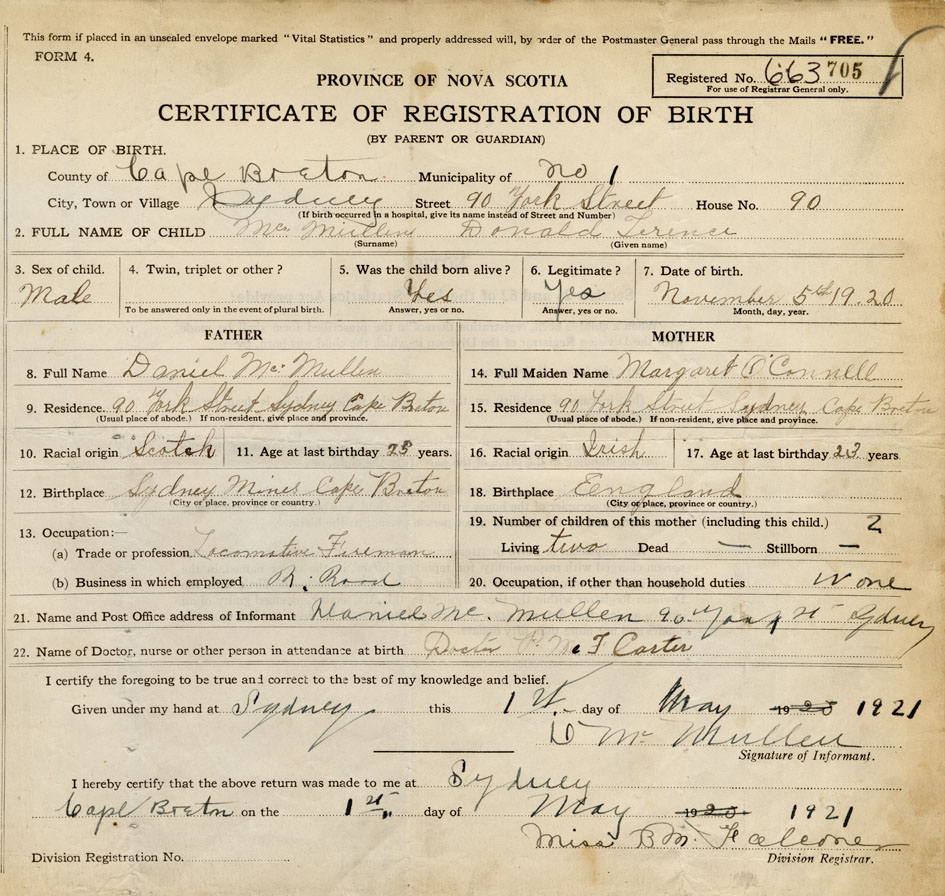 This form if placed in an unsealed envelope marked "Vital Statistics" and properly addressed will, by order of the Postmaster General pass through the Mails "FREE."
FORM 4.
PROVINCE OF NOVA SCOTIA
Registered No. 663 705
For use of Registrar General only.
CERTIFICATE OF REGISTRATION OF BIRTH
(BY PARENT OR GUARDIAN)
1. PLACE OF BIRTH.
County of Cape Breton Municipality of No 1
City, Town or Village Sydney Street 90 York Street House No. 90
(If birth occurred in a hospital, give its name instead of Street and Number)
2. FULL NAME OF CHILD Mc Mullen Donald Terence
(Surname) (Given name)
3. Sex of child. 4. Twin, triplet or other? 5. Was the child born alive? 6. Legitimate? 7. Date of birth.
Male Yes Yes November 5th 1920
To be answered only in the event of plural birth. Answer, yes or no. Answer, yes or no. Month, day, year.
FATHER MOTHER
8. Full Name Daniel Mc Mullen 14. Full Maiden Name Margaret O'Connell
9. Residence 90 York Street Sydney Cape Breton 15. Residence 90 York Street Sydney Cape Breton
(Usual place of abode.) If non-resident, give place and province. (Usual place of abode.) If non-resident, give place and province.
10. Racial origin Scotch 11. Age at last birthday years. 16. Racial origin Irish 17. Age at last birthday 23 years
12. Birthplace Sydney Mines Cape Breton 18. Birthplace Eengland
(City or place, province or country.) (City or place, province or country.)
13. Occupation:— 19. Number of children of this mother (including this child.) 2
(a) Trade or profession Locomotive Fireman Living two Dead — Stillborn —
(b) Business in which employed R. Road 20. Occupation, if other than household duties None
21. Name and Post Office address of Informant Daniel Mc. Mullen 90 York St Sydney
22. Name of Doctor, nurse or other person in attendance at birth Doctor P. Mc F Carter
I certify the foregoing to be true and correct to the best of my knowledge and belief.
Given under my hand at Sydney this 1 st day of May 1920 1921
D Mc Mullen
Signature of Informant.
I hereby certify that the above return was made to me at Sydney
Cape Breton on the 1st day of May 1920 1921
Miss B M Falconer
Division Registration No. Division Registrar.